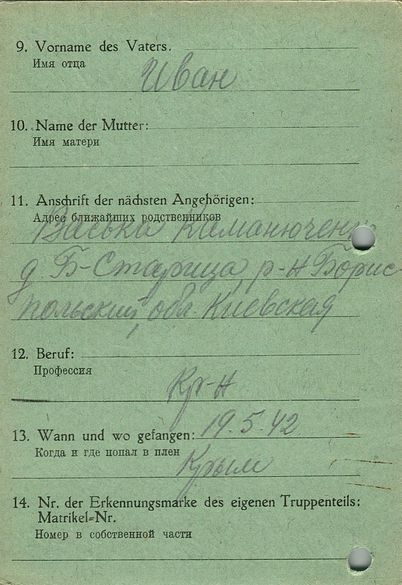 9. Vorname des Vaters.
Имя отца
Иван
10. Name der Mutter:
Имя матери
11. Anschrift der nächsten Angehörigen:
Адрес ближайших родственников
Васька
д. Б-Старица р-н Борис
польский, обл. Киевская
12. Beruf:
Профессия
Кр-н
13. Wann und wo gefangen: 19.5.42
Когда и где попал в плен
Крым
14. Nr. der Erkennungsmarke des eigenen Truppenteils:
Matrikel-Nr.
Номер в собственной части